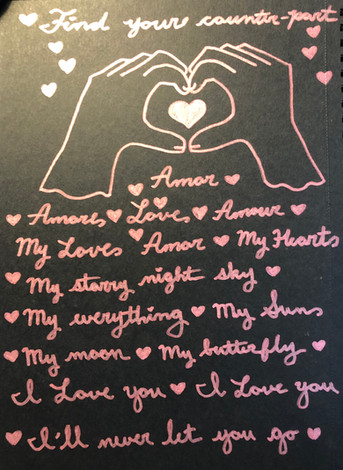 Find your counter-part
Amor
Amores Love Amour
My Loves Amor My Hearts
My starry night sky
My everything My Suns
My moon My butterfly
I Love you I Love you
I'll never let you go